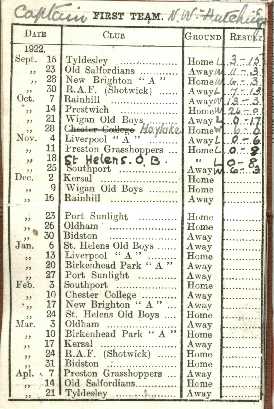 Captain FIRST TEAM. N.W. Hutchings
DATE CLUB GROUND RESULT
1922.
Sept. 16 Tyldesley Home L 3-15
,, 23 Old Salfordians Away W 11-3
,, 28 New Brighton "A" Home 6-3
,, 30 R.A.F. (Shotwick) Away L 7-13
Oct. 7 Rainhill Away W 13-3
,, 14 Prestwich Home W 26-0
,, 21 Wigan Old Boys Away L 0-17
,, 28 Chester College Hoylake Home W 6-0
Nov. 4 Liverpool "A" Away L 0-6
,, 11 Preston Grasshoppers Home L 0-8
18 St Helens. O.B. " L 0-8
,, 25 Southport Away W 6-3
Dec. 2 Kersal Home
,, 9 Wigan Old Boys Home
,, 16 Rainhill Away
,, 23 Port Sunlight Home
,, 26 Oldham Home
,, 30 Bidston Away
Jan. 6 St. Helens Old Boys Away
,, 13 Liverpool "A" Home
,, 20 Birkenhead Park "A" Away
,, 27 Port Sunlight Away
Feb. 3 Southport Home
,, 10 Chester College Away
,, 17 New Brighton "A" Away
,, 24 St. Helens Old Boys Home
Mar. 3 Oldham Away
,, 10 Birkenhead Park "A" Home
,, 17 Kersal Away
,, 24 R.A.F. (Shotwick) Home
,, 31 Bidston Home
Apl. 7 Preston Grasshoppers Away
,, 14 Old Salfordians Home
,, 21 Tyldesley Away